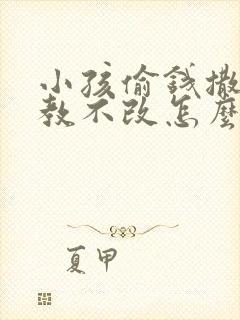 小孩偷錢撒
教不改怎麼
夏甲